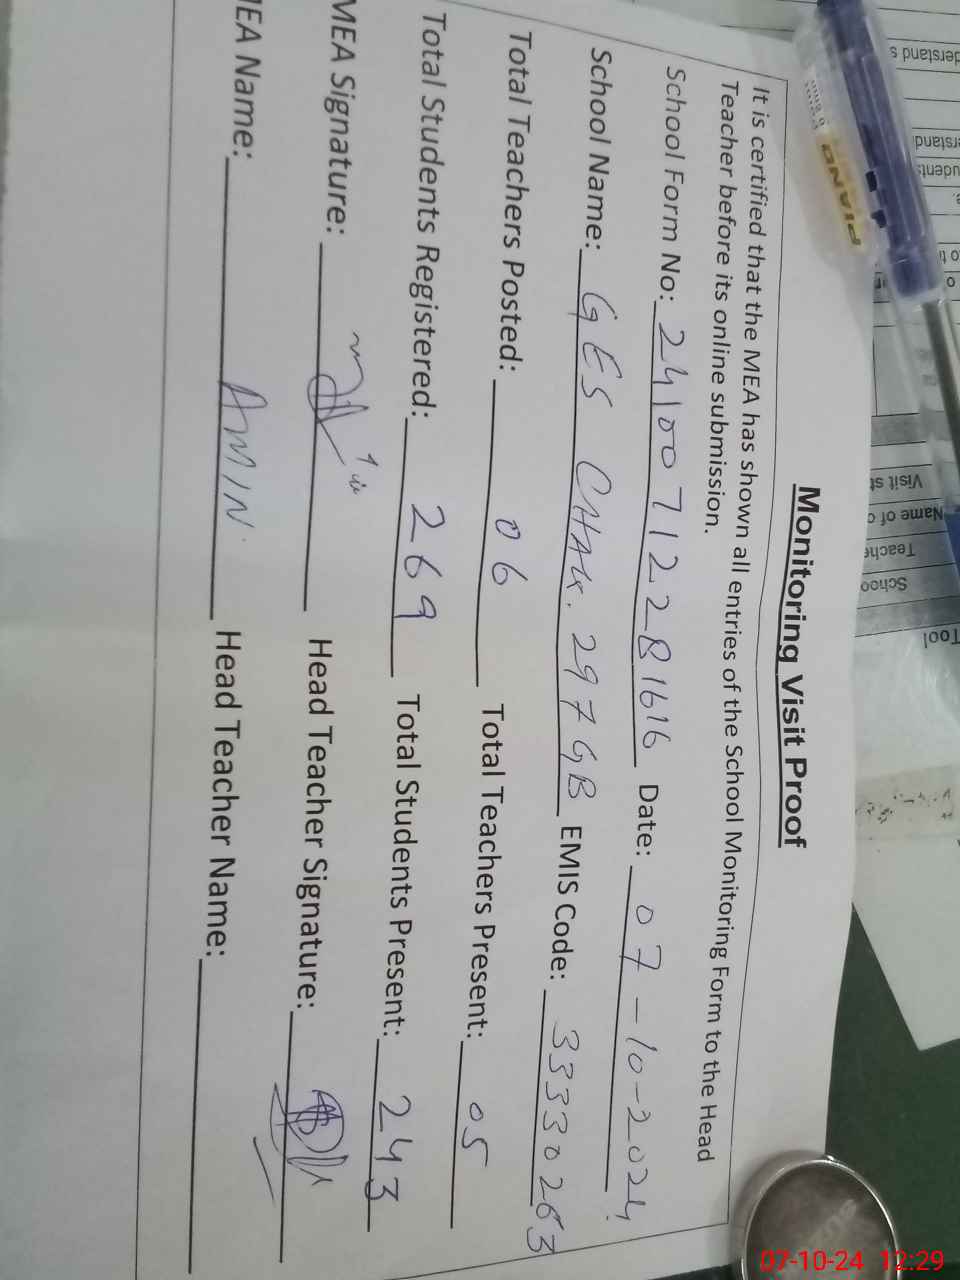 Monitoring Visit Proof
It is certified that the MEA has shown all entries of the School Monitoring Form to the Head
Teacher before its online submission.
School Form No: 24100712281616 Date: 07-10-2024
School Name: GES CHAK. 297 GB EMIS Code: 33330263
Total Teachers Posted: 06 Total Teachers Present: 05
Total Students Registered: 269 Total Students Present: 243
MEA Signature: Head Teacher Signature:
MEA Name: AMIN Head Teacher Name:
PIANO
Visit
Name of
School
Tool
07-10-24 12:29